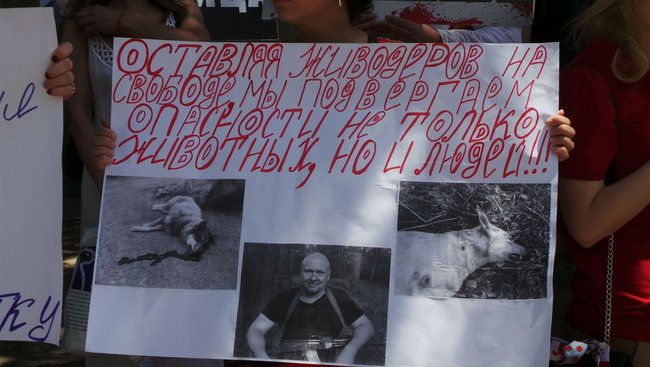 ОСТАВЛЯЯ ЖИВОДЕРОВ НА
СВОБОДЕ, МЫ ПОДВЕРГАЕМ
ОПАСНОСТИ НЕ ТОЛЬКО
ЖИВОТНЫХ, НО И ЛЮДЕЙ!!!